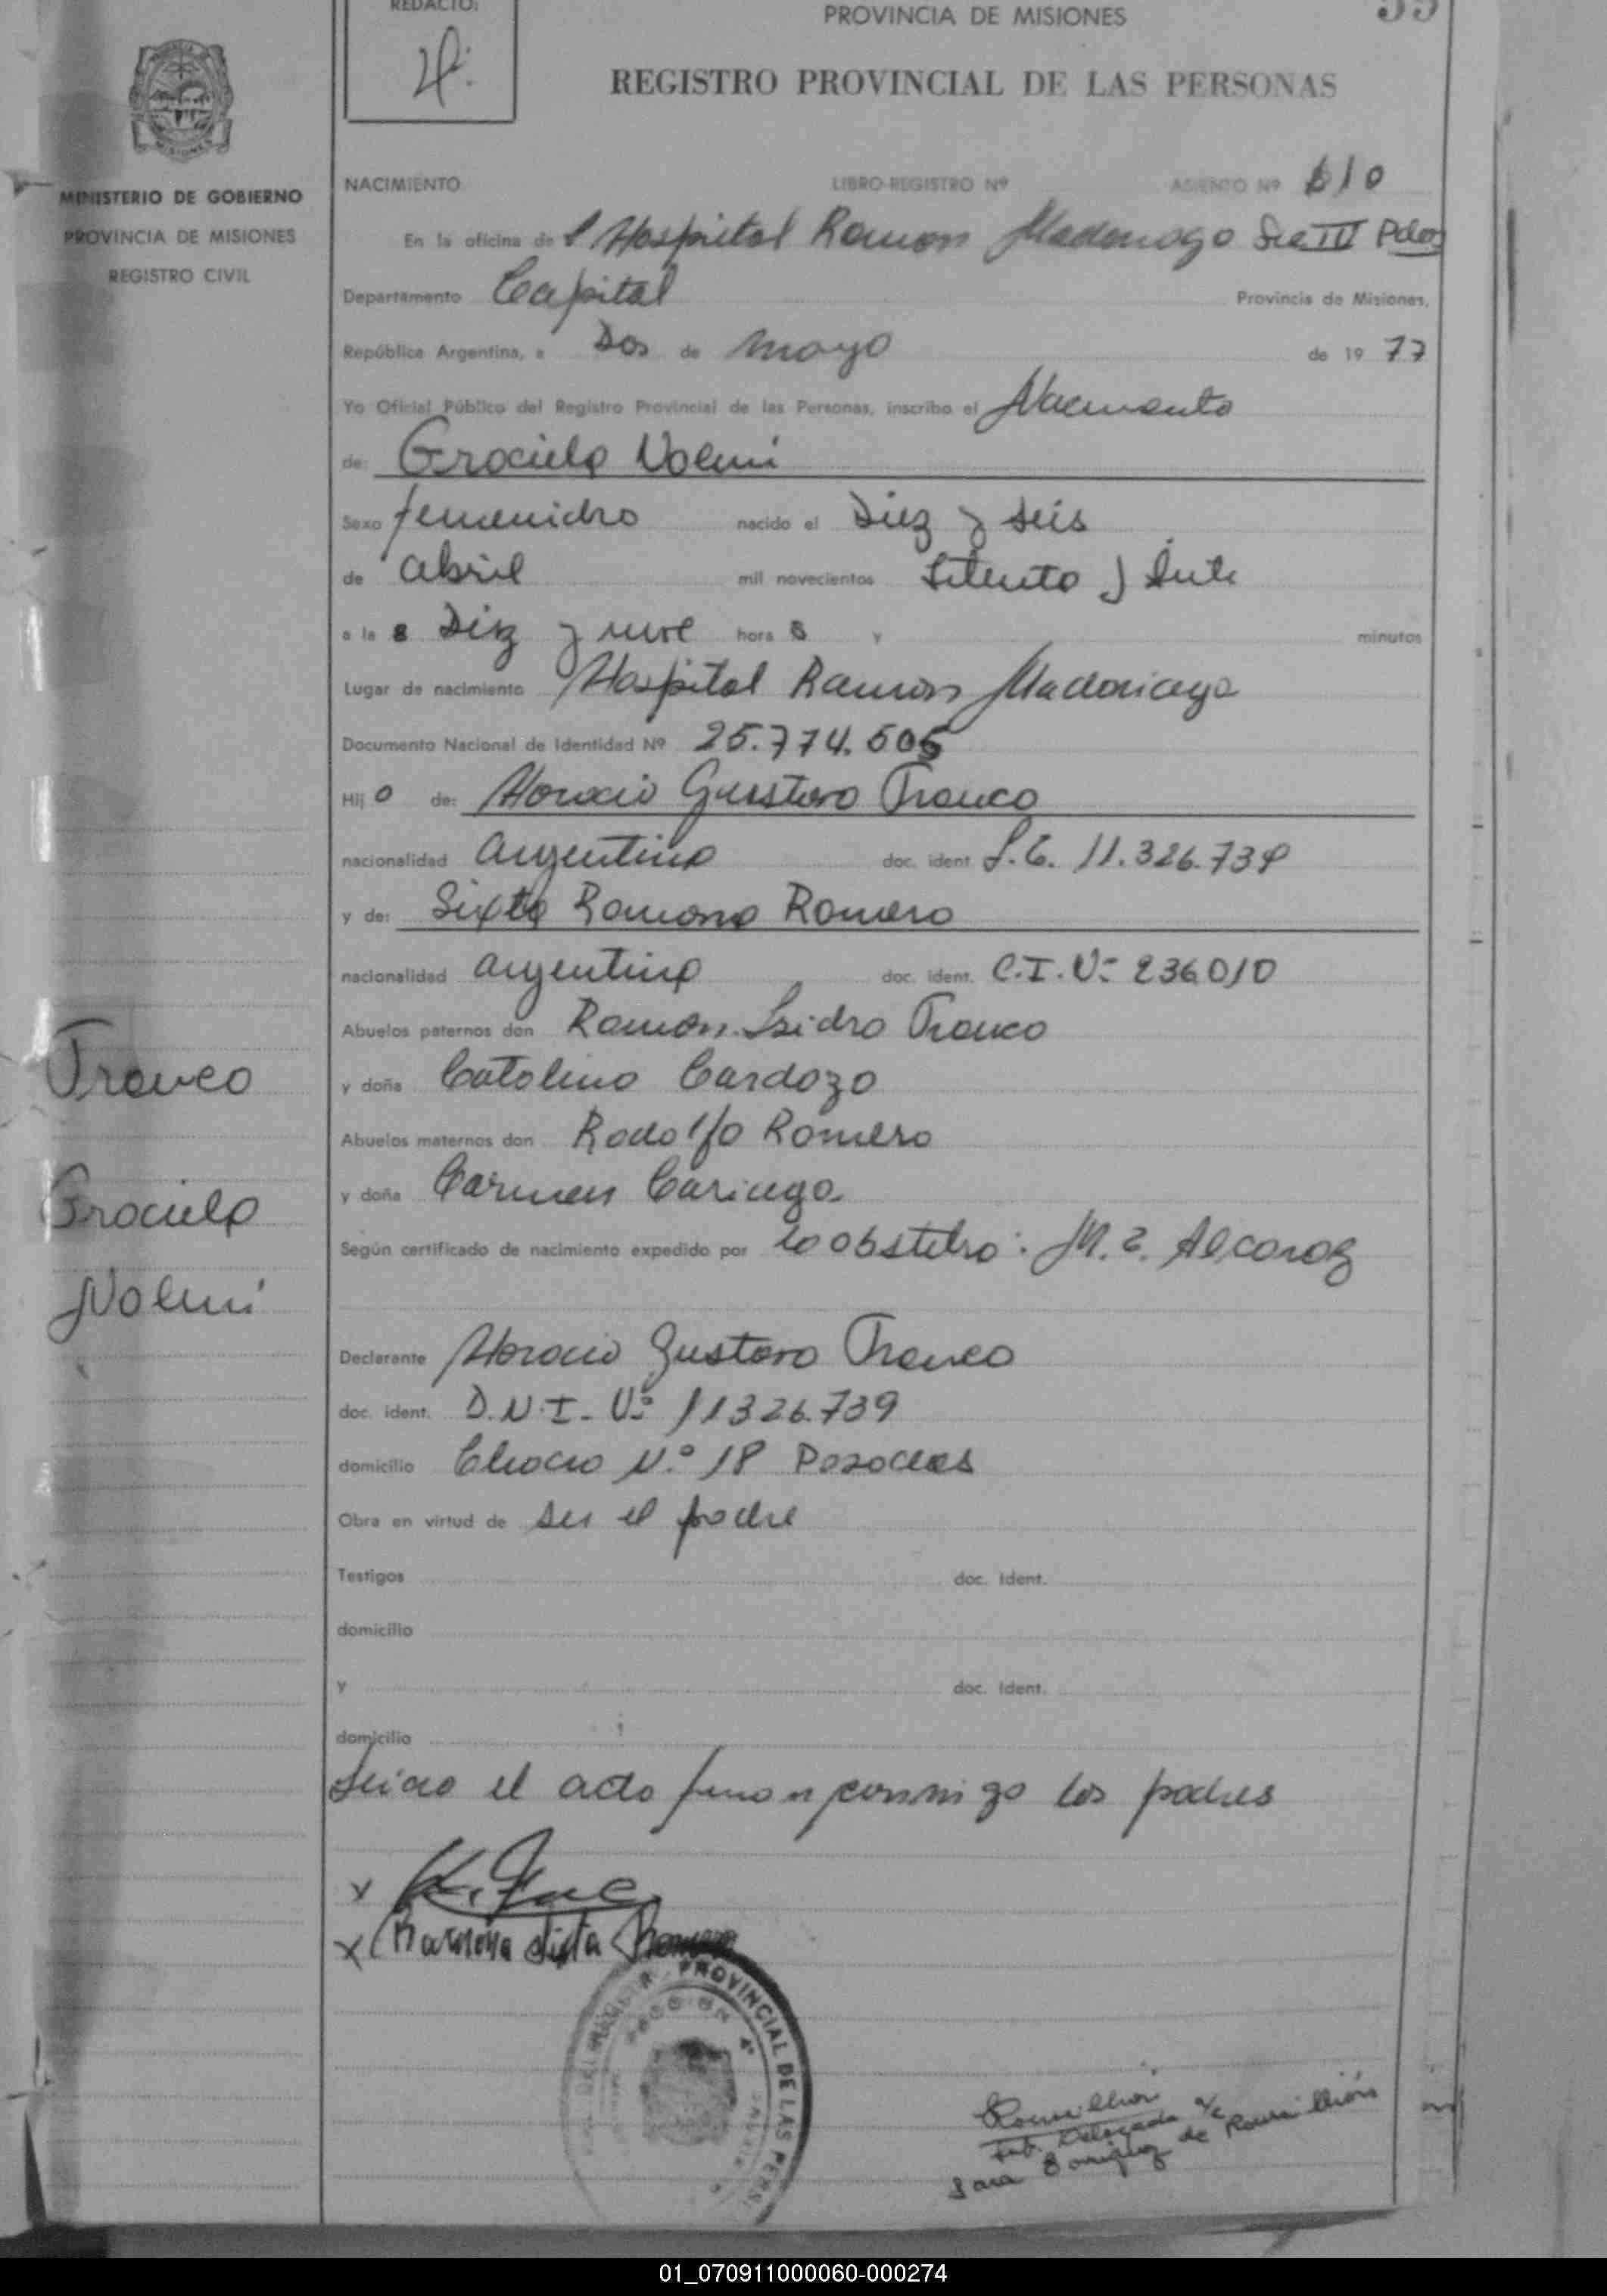 REDACTO:
PROVINCIA DE MISIONES
REGISTRO PROVINCIAL DE LAS PERSONAS
MISIONES
MINISTERIO DE GOBIERNO
PROVINCIA DE MISIONES
REGISTRO CIVIL
NACIMIENTO LIBRO-REGISTRO Nº ASIENTO Nº 610
En la oficina del Hospital Ramon Madariaga Sec IV Pdas
Departamento Capital Provincia de Misiones,
República Argentina, a Dos de mayo de 19 77
Yo Oficial Público del Registro Provincial de las Personas, inscribo el Nacimiento
de: Graciela Noemi
Sexo femenino nacido el Diez y seis
de abril mil novecientos setenta y siete
a la s Diez y nueve hora s y minutos
Lugar de nacimiento Hospital Ramon Madariaga
Documento Nacional de Identidad Nº 25.774.505
Hij a de: Horacio Gustavo Franco
nacionalidad argentina doc. ident L.E. 11.326.739
y de: Sixta Ramona Romero
nacionalidad argentina doc. ident. C.I.Nº 236010
Abuelos paternos don Ramón Isidro Franco
y doña Catalina Cardozo
Abuelos maternos don Rodolfo Romero
y doña Carmen Cariaga
Según certificado de nacimiento expedido por la obstetra: M. E. Alcaraz
Franco
Graciela
Noemi
Declarante Horacio Gustavo Franco
doc. ident. D.N.I. Nº 11326.739
domicilio Chacra N.º 18 Posadas
Obra en virtud de ser el padre
Testigos doc. Ident.
domicilio
y doc. Ident.
domicilio
Leida el acta firman conmigo los padres
x
x Ramona Sixta Romero
PROVINCIAL DE LAS PERS
Roumillion
Sub. Delegada a/c
Sara de Roumillión
01_070911000060-000274